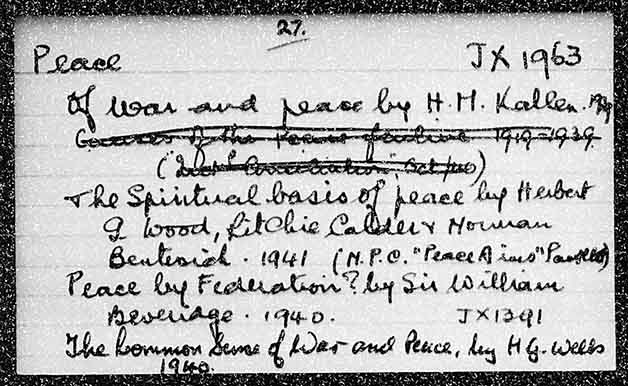 27.
Peace JX 1963
Of war and peace by H. M. Kallen. 1939
Causes of the Peace failure 1919-1939
("Int^l Conciliation" Oct/40)
The Spiritual basis of peace by Herbert
G Wood, Ritchie Calder & Norman
Bentwich. 1941 (N.P.C. "Peace Aims" Pamphlet)
Peace by Federation? by Sir William
Beveridge. 1940. JX1391
The Common Sense of War and Peace, by H G. Wells
1940.